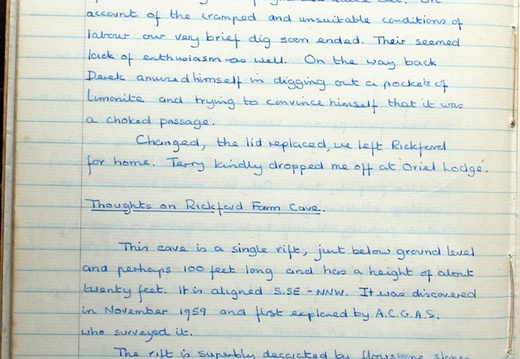 account of the cramped and unsuitable conditions of
labour our very brief dig soon ended. Their seemed
lack of enthusiasm as well. On the way back
Derek amused himself in digging out a pockets of
Limonite and trying to convince himself that it was
a choked passage.
Changed, the lid replaced, we left Rickford
for home. Terry kindly dropped me off at 'Oriel Lodge'.
Thoughts on Rickford Farm Cave.
This cave is a single rift, just below ground level
and perhaps 100 feet long and has a height of about
twenty feet. It is aligned S.SE - NNW. It was discovered
in November 1959 and first explored by A.C.G.A.S.
who surveyed it.
The rift is superbly decorated by flowstone